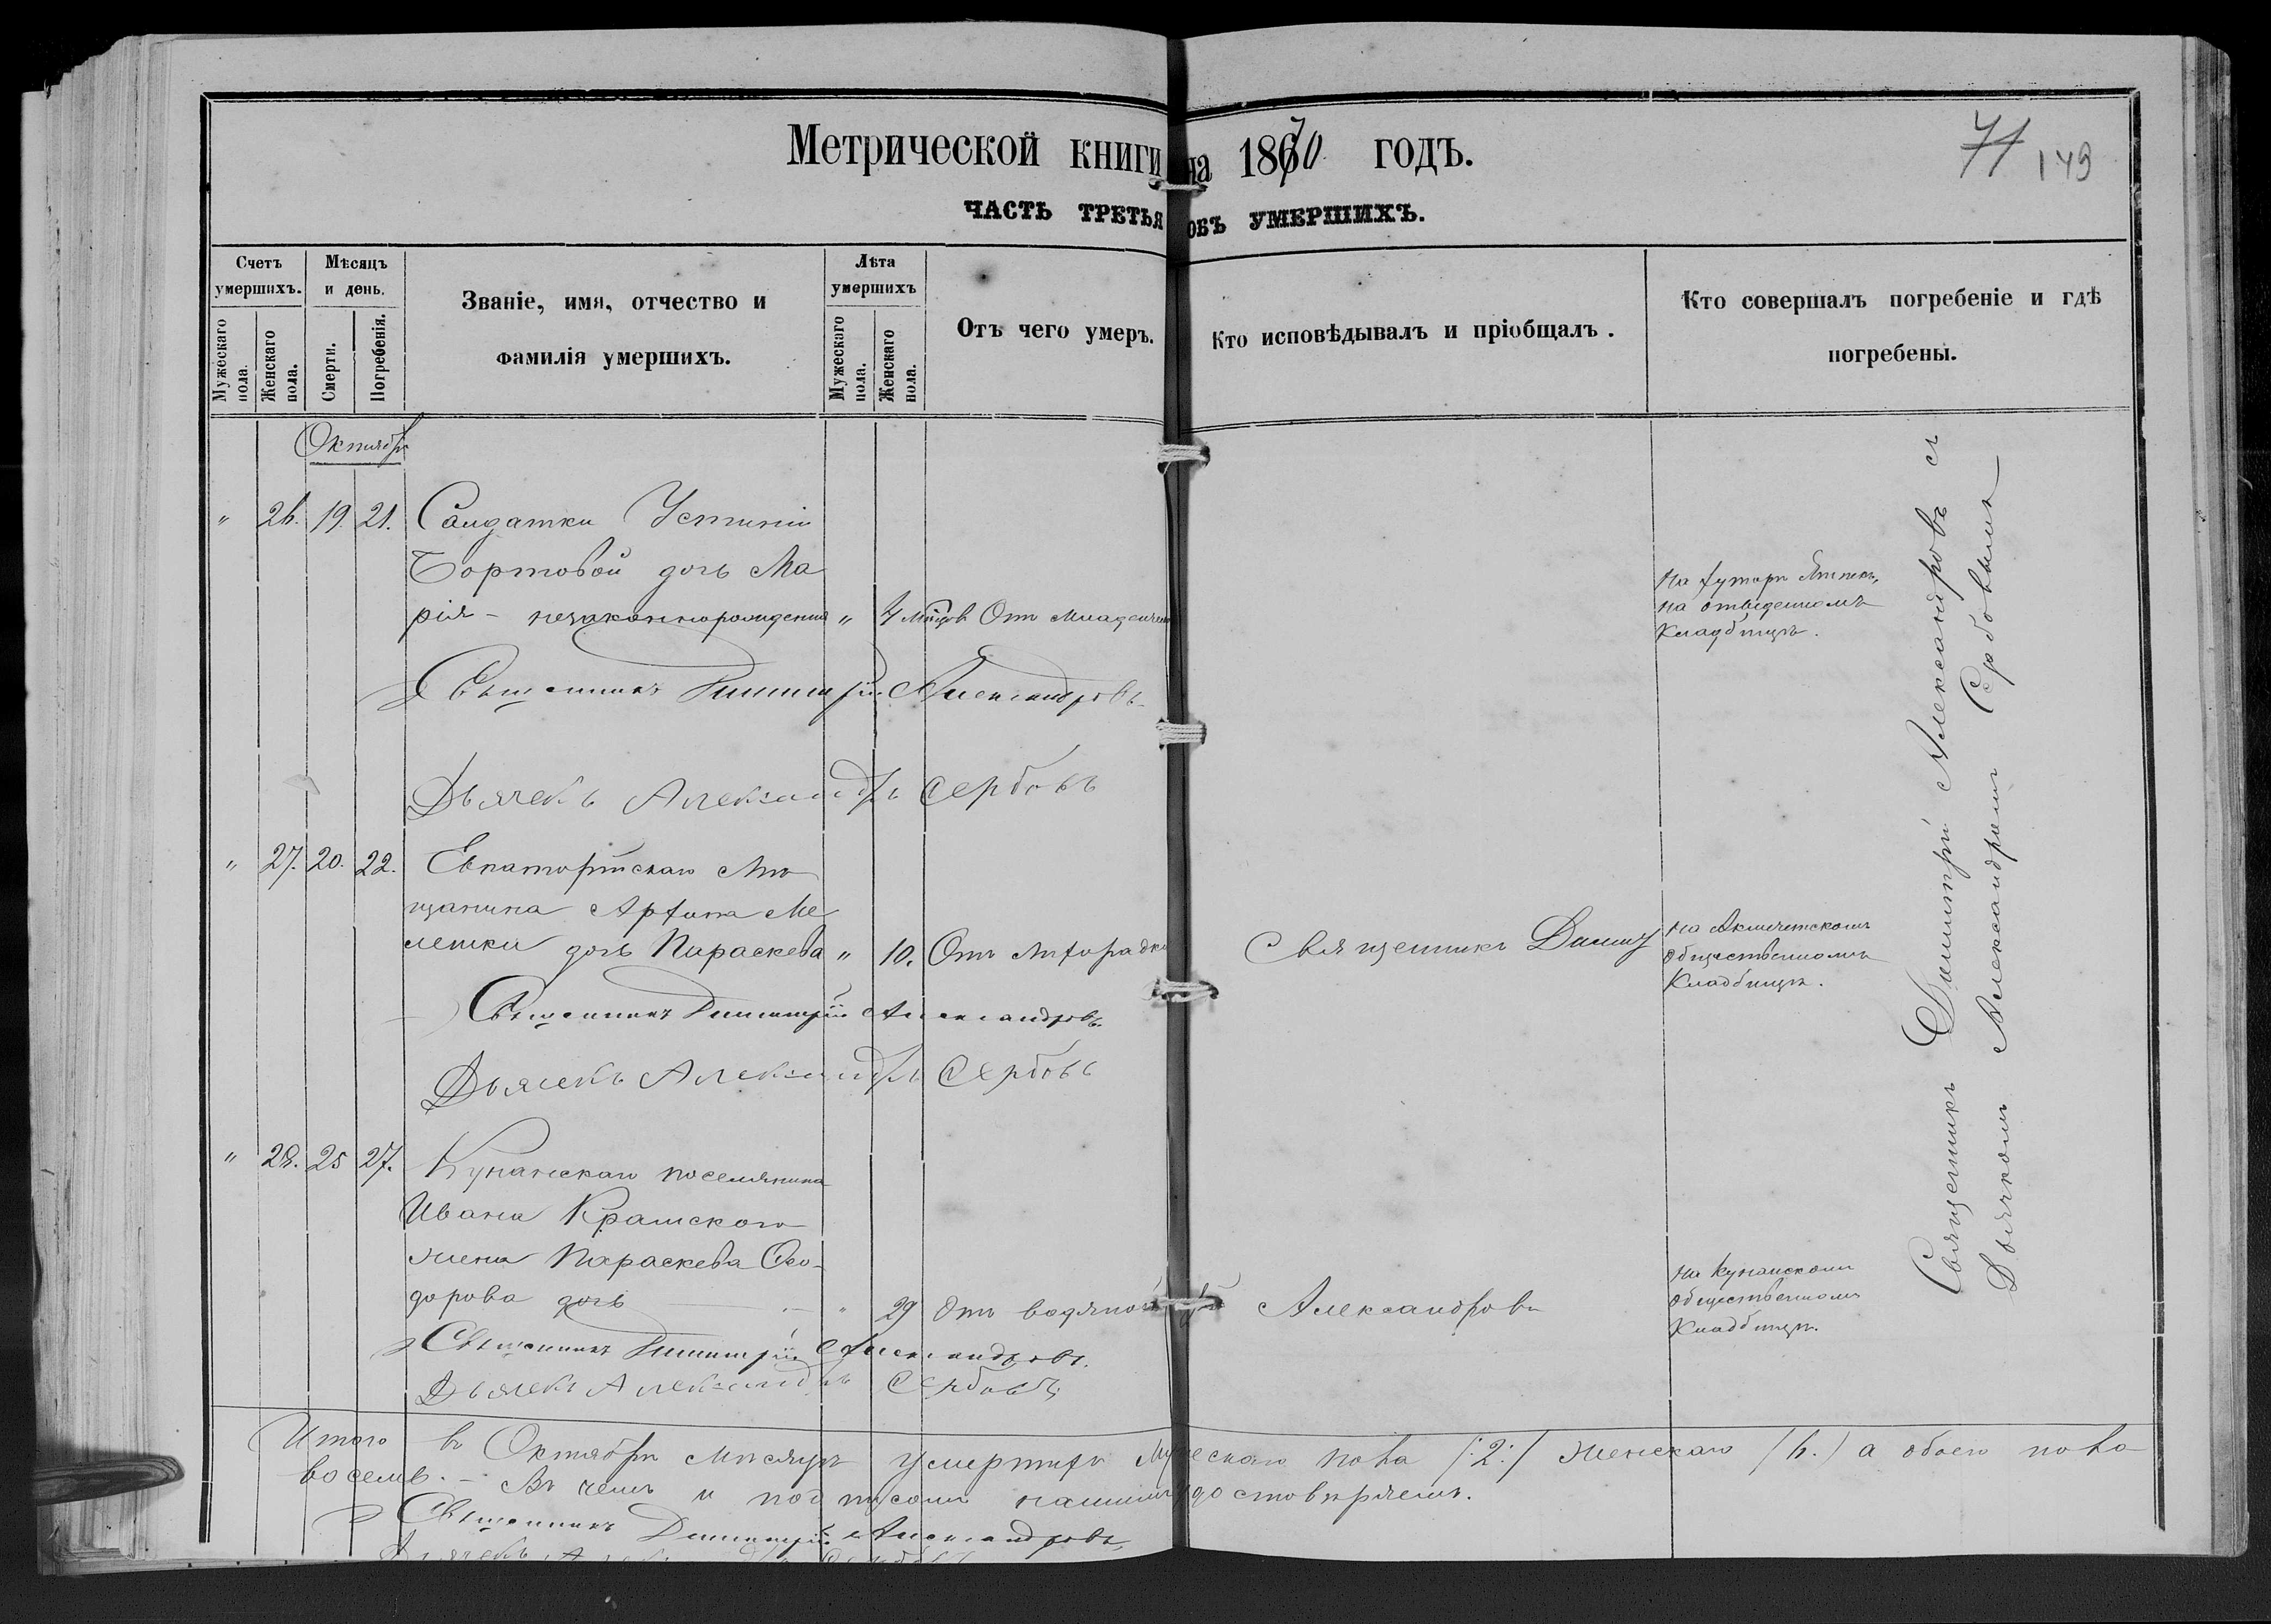 Метрической книги на 1870 годъ.
71 149
ЧАСТЬ ТРЕТЬЯ ОБЪ УМЕРШИХЪ.
Счетъ умершихъ.
Мѣсяцъ и день.
Званіе, имя, отчество и
фамилія умершихъ.
Лѣта умершихъ
Отъ чего умеръ.
Кто исповѣдывалъ и пріобщалъ.
Кто совершалъ погребеніе и гдѣ
погребены.
Мужескаго пола.
Женскаго пола.
Смерти.
Погребенія.
Мужескаго пола.
Женскаго пола.
Октябрь
" 26. 19. 21. Салдатки Устиніи
Бортовой дочь Ма
рія – незаконнорожденна " 4 мѣсцов Отъ младенчес
на хуторѣ
на отведенномъ
Кладбищѣ.
Священникъ Димитрій Александровъ
Дьячекъ Александръ Сербовъ
" 27. 20. 22. Евпаторійскаго Мѣ
щанина Архипа Ме
лешки дочь Параскева " 10. Отъ лихорадки
Священникъ Димит
на Акмечетскомъ
общественномъ
Кладбищѣ.
Священникъ Димитрій Александровъ
Дьячекъ Александръ Сербовъ
" 28. 25 27. Кунанскаго поселянина
Ивана Крамского
жена Параскева Ѳео-
дорова дочь — " 29 Отъ водяной рій Александровъ
на Кунанскомъ
общественномъ
Кладбищѣ.
Священникъ Димитрій Александровъ.
Дьячекъ Александръ Сербовъ
Священникъ Димитрій Александровъ съ
Дьячкомъ Александремъ Сербовымъ
Итого въ Октябрѣ мѣсяцѣ умершихъ мужескаго пола /:2:/ женскаго /6./ а обоего пола
восемь. – Въ чемъ и подписомъ нашимъ удостовѣряемъ.
Священникъ Димитрій Александровъ
Дьячекъ Александръ Сербовъ